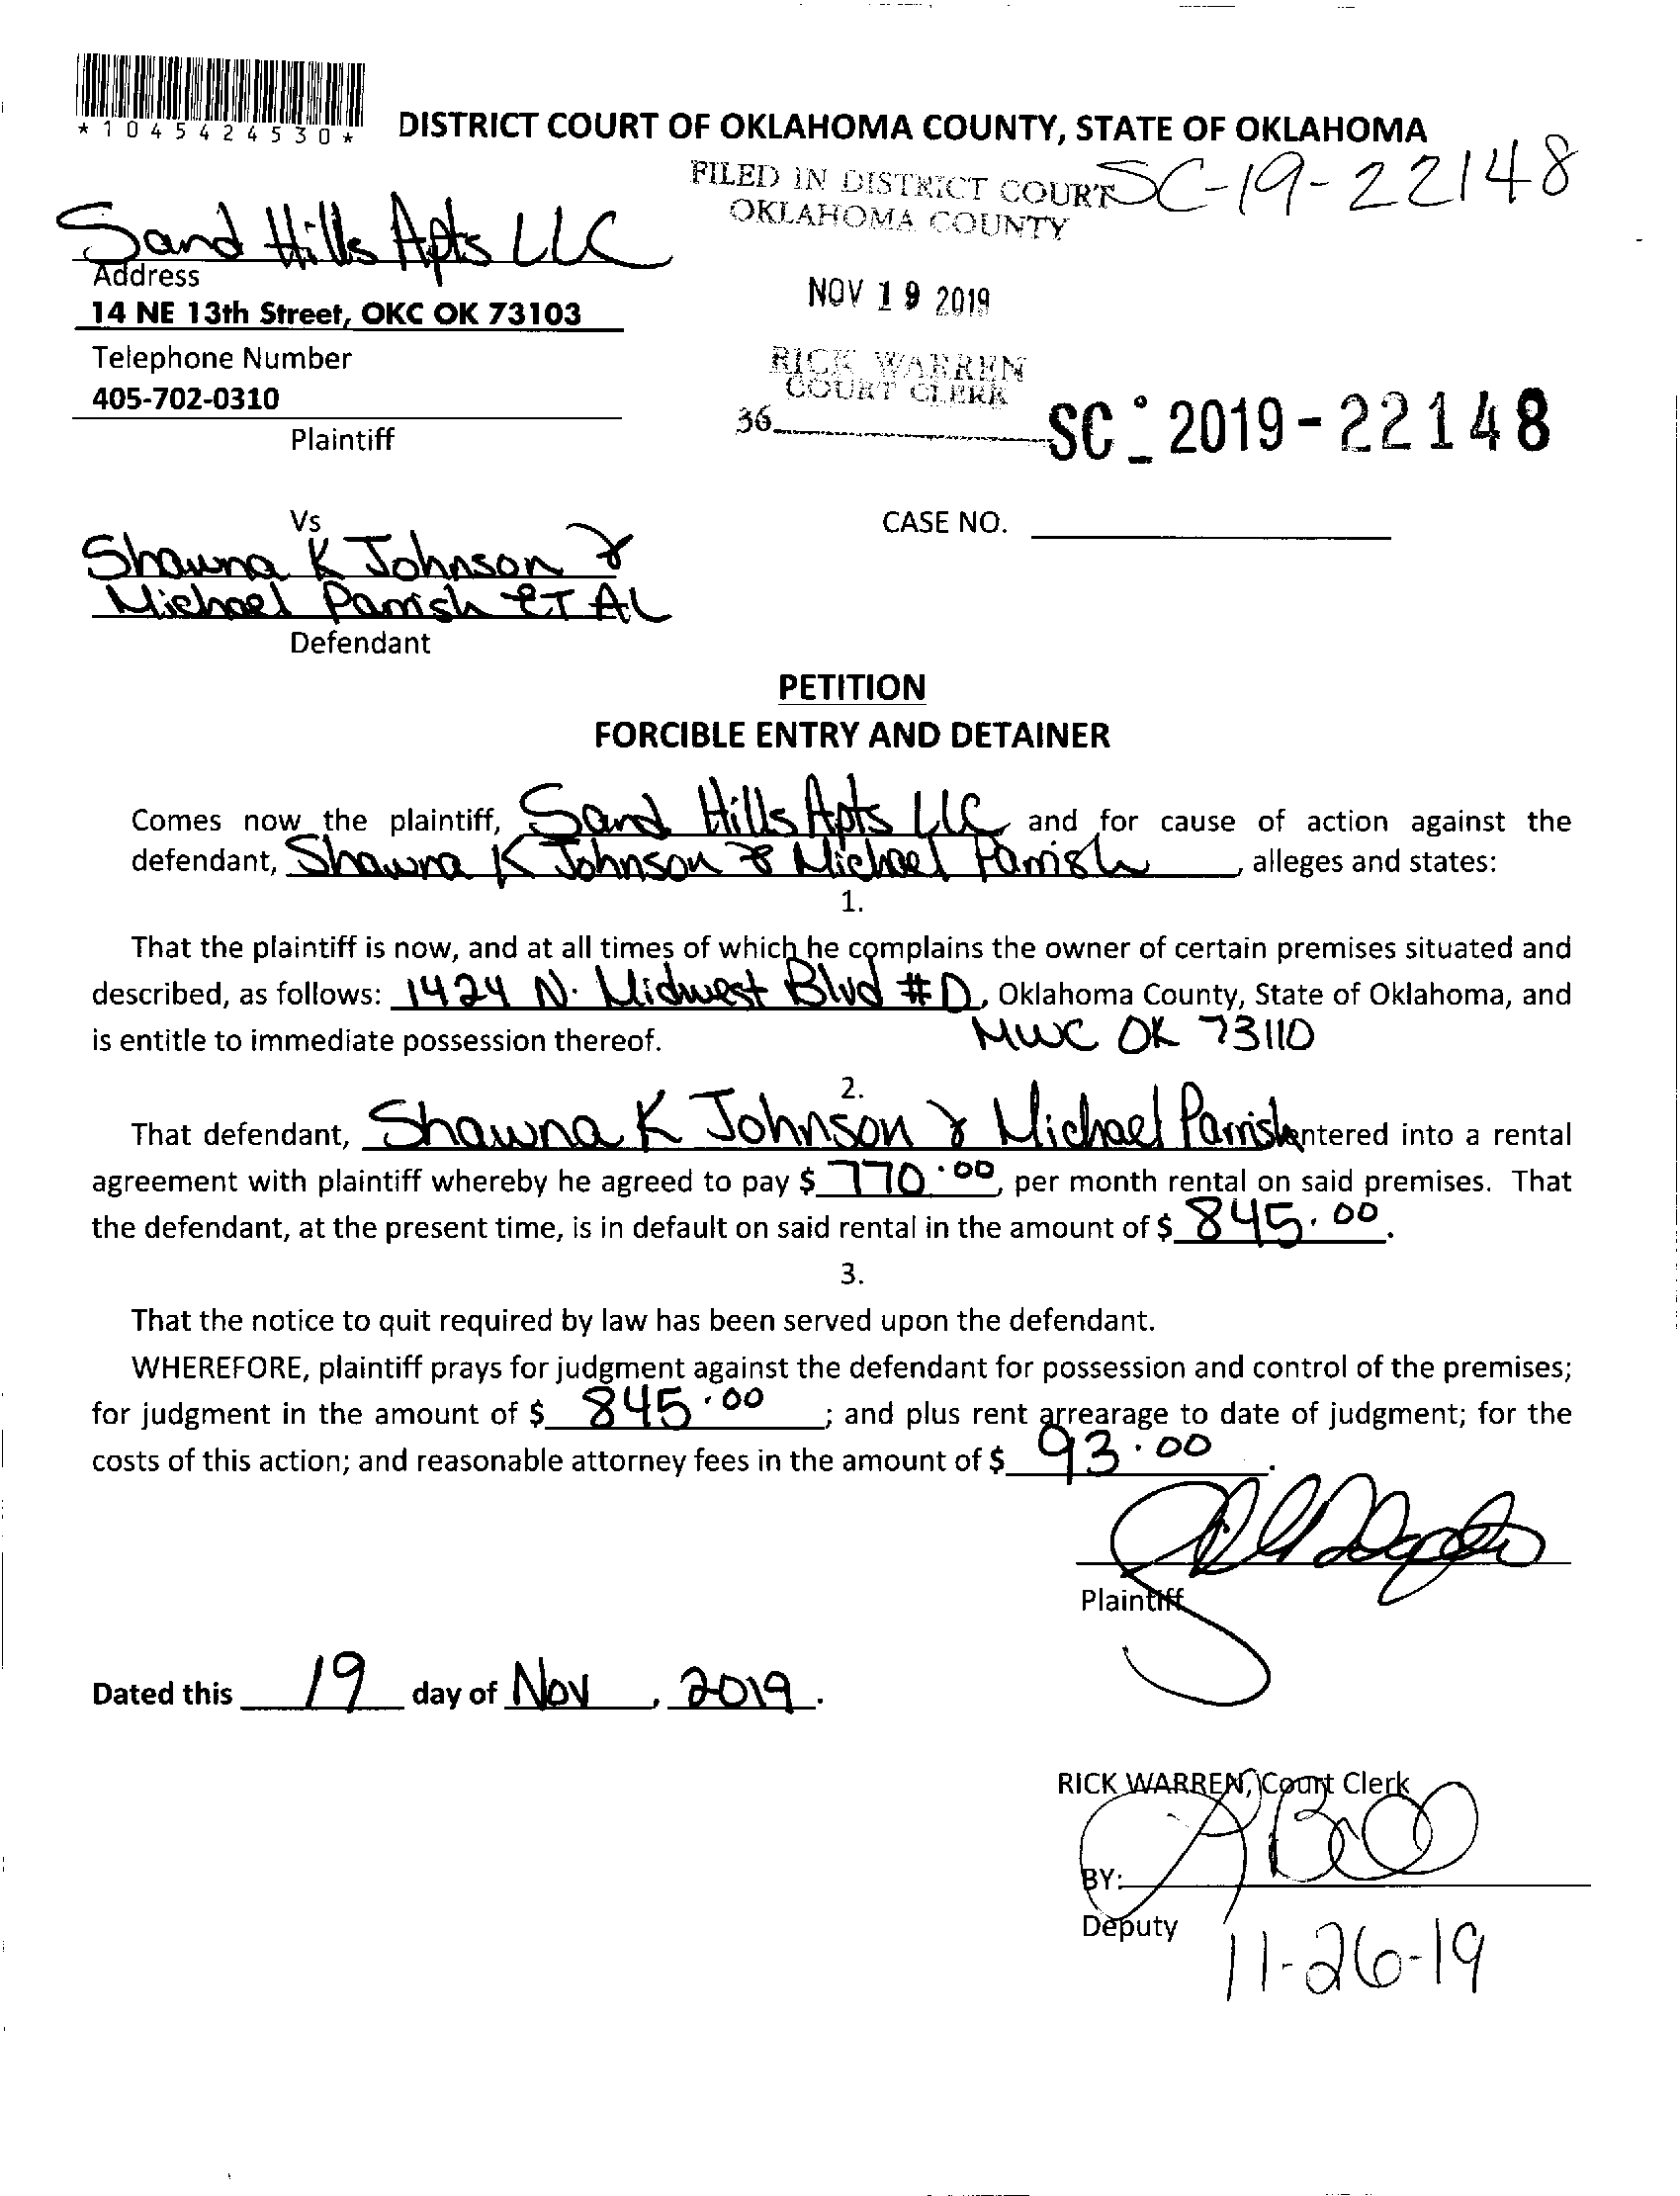 *1045424530*
DISTRICT COURT OF OKLAHOMA COUNTY, STATE OF OKLAHOMA
FILED IN DISTRICT COURT
OKLAHOMA COUNTY
SC-19-22148
Sand Hills Apts LLC
Address
14 NE 13th Street, OKC OK 73103
NOV 19 2019
Telephone Number
405-702-0310
RICK WARREN
COURT CLERK
36
SC-2019-22148
Plaintiff
Vs
CASE NO.
Shawna K Johnson &
Michael Parrish ET AL
Defendant
PETITION
FORCIBLE ENTRY AND DETAINER
Comes now the plaintiff, Sand Hills Apts LLC and for cause of action against the
defendant, Shawna K Johnson & Michael Parrish, alleges and states:
1.
That the plaintiff is now, and at all times of which he complains the owner of certain premises situated and
described, as follows: 1424 N. Midwest Blvd #D, Oklahoma County, State of Oklahoma, and
is entitle to immediate possession thereof. MWC OK 73110
2.
That defendant, Shawna K Johnson & Michael Parrish entered into a rental
agreement with plaintiff whereby he agreed to pay $ 770.00, per month rental on said premises. That
the defendant, at the present time, is in default on said rental in the amount of $ 845.00.
3.
That the notice to quit required by law has been served upon the defendant.
WHEREFORE, plaintiff prays for judgment against the defendant for possession and control of the premises;
for judgment in the amount of $ 845.00; and plus rent arrearage to date of judgment; for the
costs of this action; and reasonable attorney fees in the amount of $ 93.00.
Plaintiff
Dated this 19 day of Nov, 2019.
RICK WARREN, Court Clerk
BY:
Deputy
11-26-19